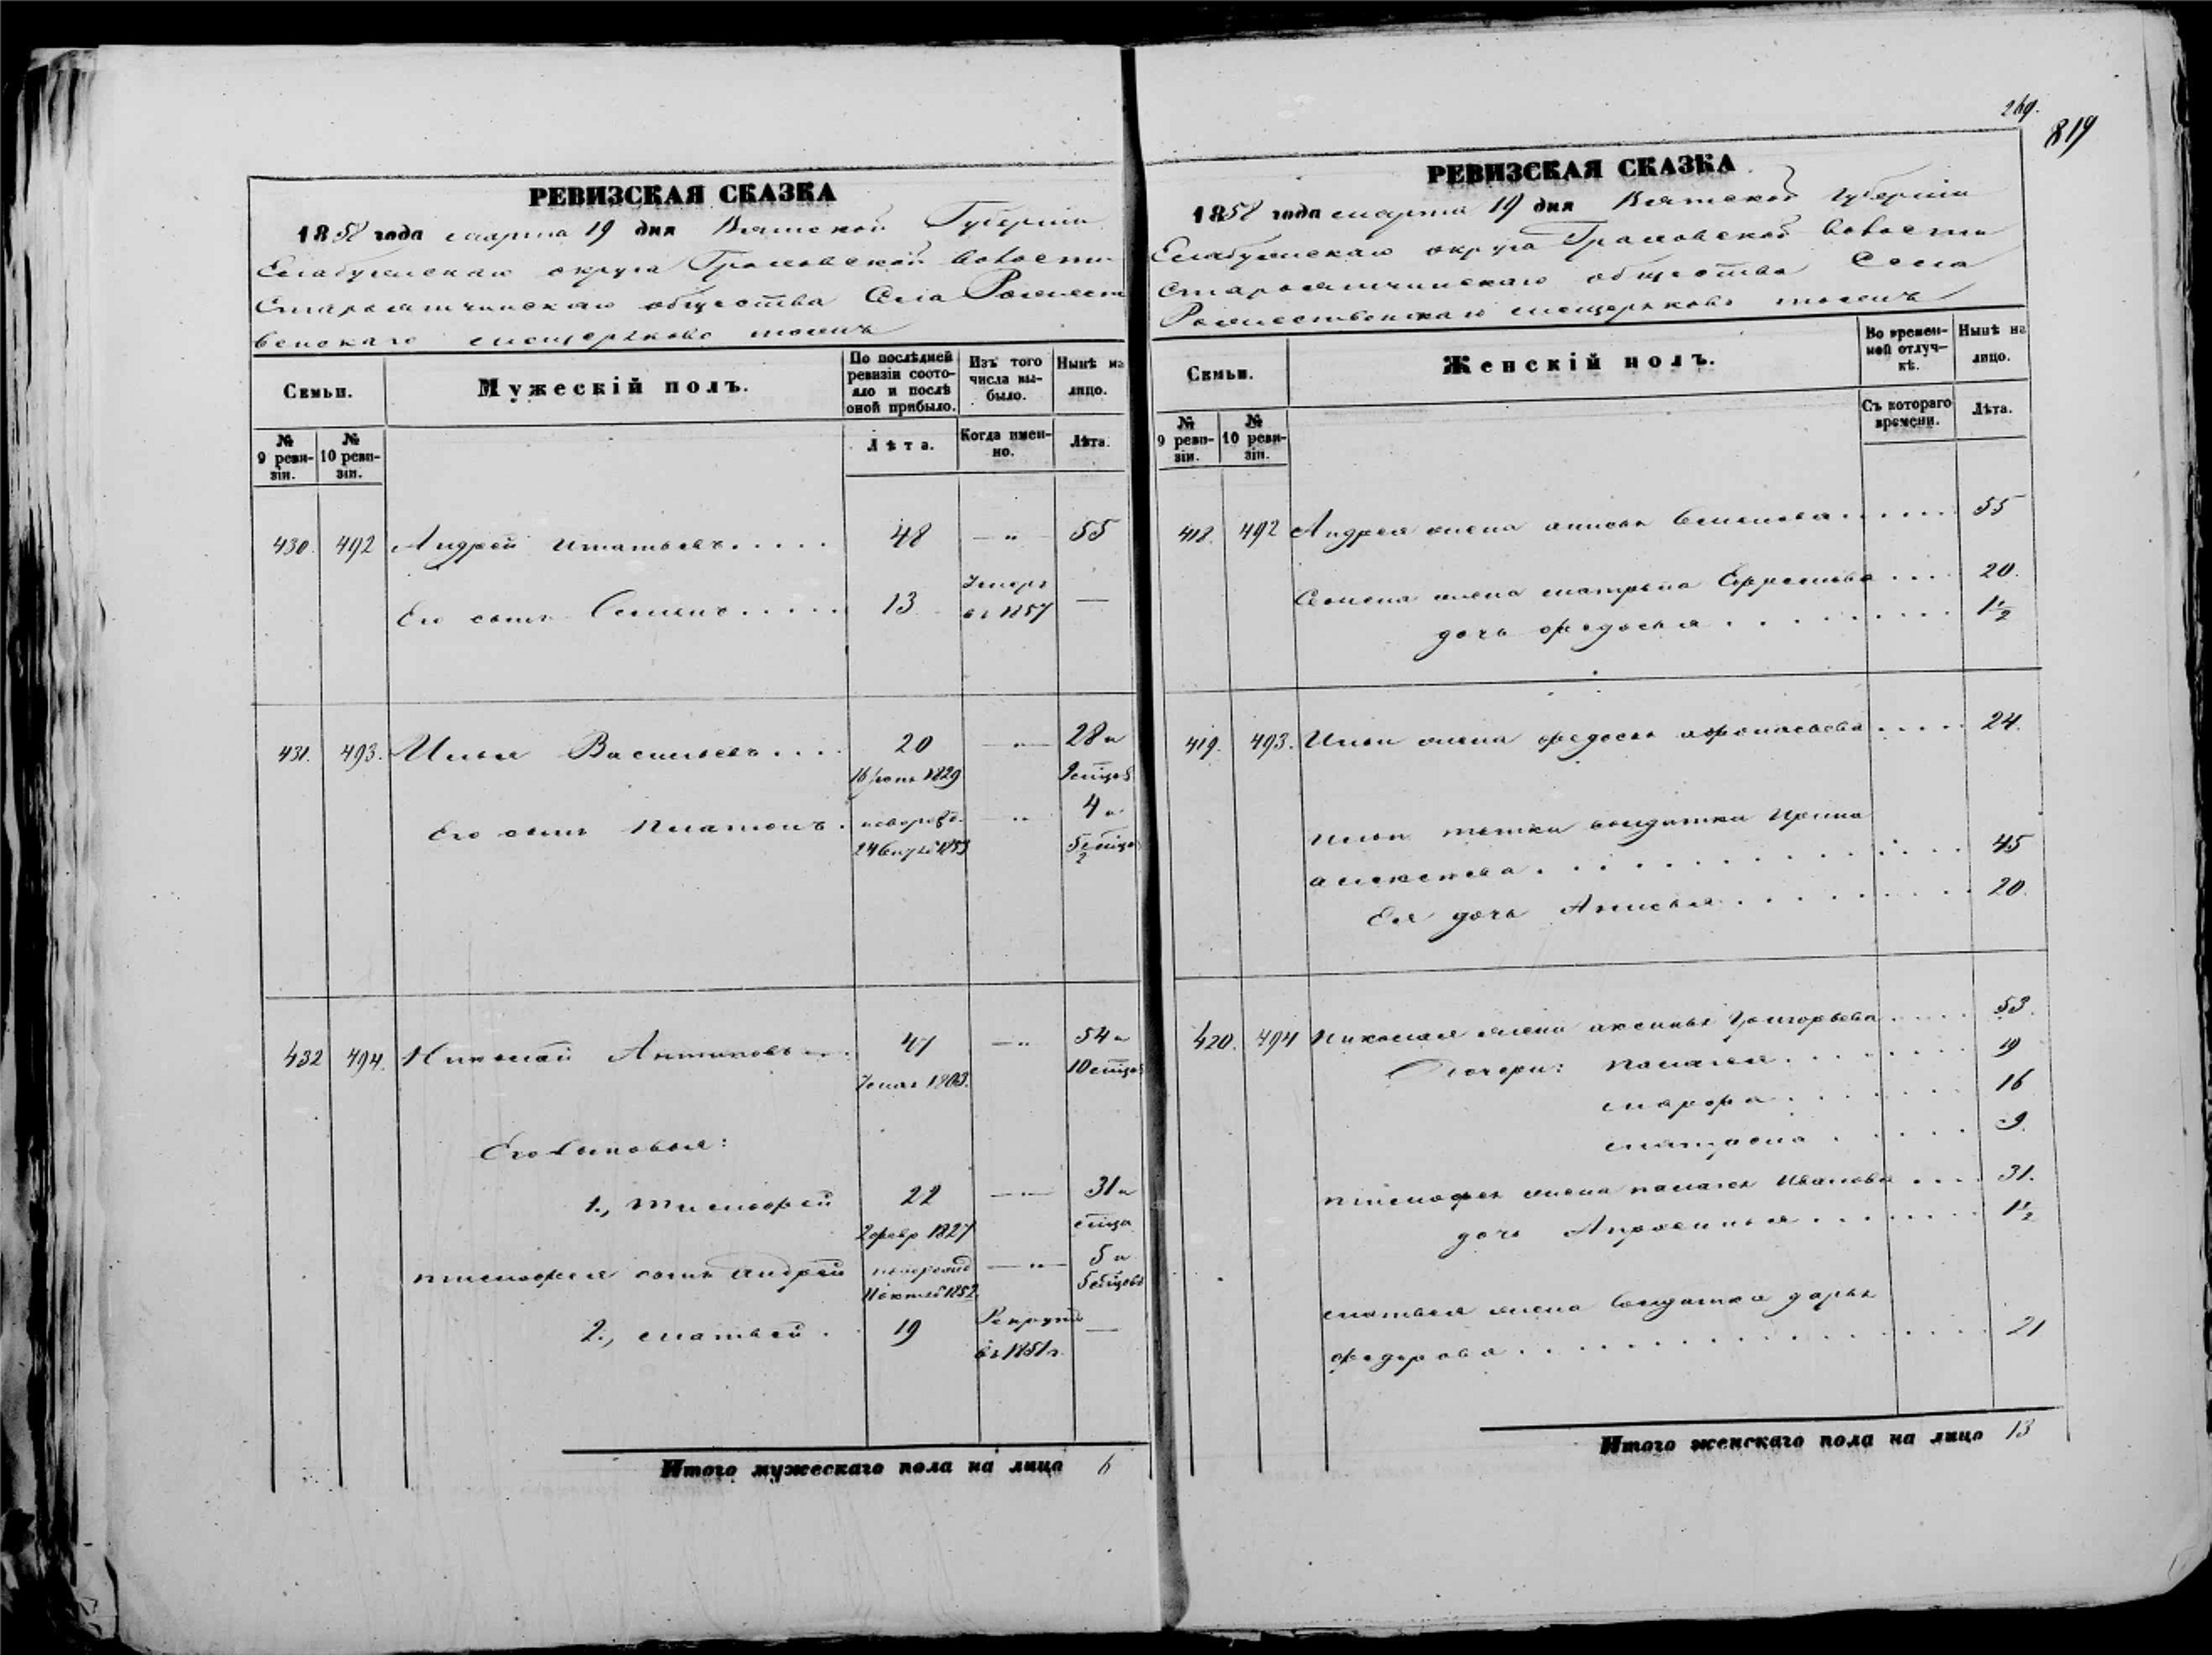 РЕВИЗСКАЯ СКАЗКА
1858 года марта 19 дня Вятской Губернiи
Елабужскаго округа Граховской волости
Староятчинскаго общества Села Рожжест
венскаго Мещеряково тожъ
Семьи.
Мужескiй полъ.
По послѣдней ревизiи состояло и послѣ оной прибыло.
Изъ того числа выбыло.
Нынѣ на лицо.
№ 9 ревизiи.
№ 10 ревизiи.
Лѣта.
Когда именно.
Лѣта.
430. 492 Андрей Игнатьевъ..... 48 — " 55
Его сынъ Семенъ..... 13 Умеръ —
въ 1857
431. 493. Илья Васильевъ.... 20 — " — 28 и
16 1829 9 мѣцов
Его сынъ Платонъ. новорожд. — " 4 и
24 1853 5 мѣцов
2
432 494. Николай Антиповъ 47 — " 54 и
1803. 10 мѣцов
Его Сыновья:
1., Тимофей 22 — " — 31 и
2 февр 1827 мѣца
Тимофея сынъ Андрей новорожд — " — 5 и
11 октяб 1852. 5 мѣцовъ
2., Матвей. 19 Рекрутъ —
въ 1851 г.
Итого мужескаго пола на лицо 6
269.
819
РЕВИЗСКАЯ СКАЗКА
1858 года марта 19 дня Вятской Губернiи
Елабужскаго округа Граховской волости
Староятчинскаго общества Села
Рожжественскаго Мещеряково тожъ
Семьи.
Женскiй полъ.
Во временной отлучкѣ.
Нынѣ на лицо.
№ 9 ревизiи.
№ 10 ревизiи.
Съ котораго времени.
Лѣта.
418. 492 Андрея жена Анисья Семенова..... 55
Семена жена Матрена Ефремова.... 20.
дочь Федосья......... 1½
419. 493. Ильи жена Федосья Афонасьева..... 24.
Ильи тетка солдатка Ирина
Алексеева........... 45
Ея дочь Анисья......... 20.
420. 494 Николая жена Аксинья Григорьева..... 53.
Дочери: Палагея........ 19
Марфа....... 16
Матрена...... 9.
Тимофея жена Палагея Иванова.... 31.
дочь Апросинья....... 1½
Матвея жена Солдатка Дарья
Федорова.............. 21
Итого женскаго пола на лицо 13